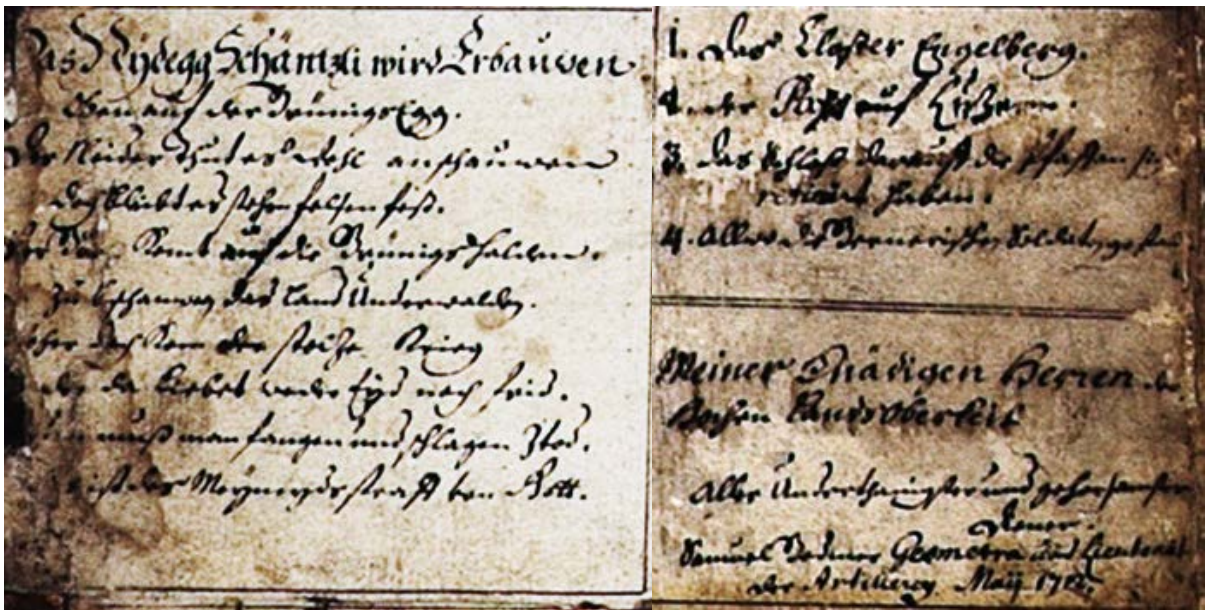 Das Nÿdegg Schäntzli wird Erbauwen
Oben auf der Brünigs Egg.
Der Neider thut es wohl anschauwen
doch bleibt es stehn felsen fest.
Bär Komt auf die Brünigs halden.
Zu bschauwen das Land Underwalden.
doch Kom der stoltze Krieg
der da liebet weder Eyd noch frid.
muß man fangen und schlagen Ztod.
ist des Meyneyds straff von Gott.
1. Das Closter Engelberg.
2. der Pass auf Lutzern.
3. das Schloß darauff die pfaffen sich
retiriert haben.
4. Aller der Bernerischen Soldaten
Meiner Gnädigen Herren der
Hochen Landts Oberkeit
Aller Underthänigster und gehorsamster
Diener.
Samuel Bodmer Geometra und Lieutenant
der Artillerey Maÿ 1712.